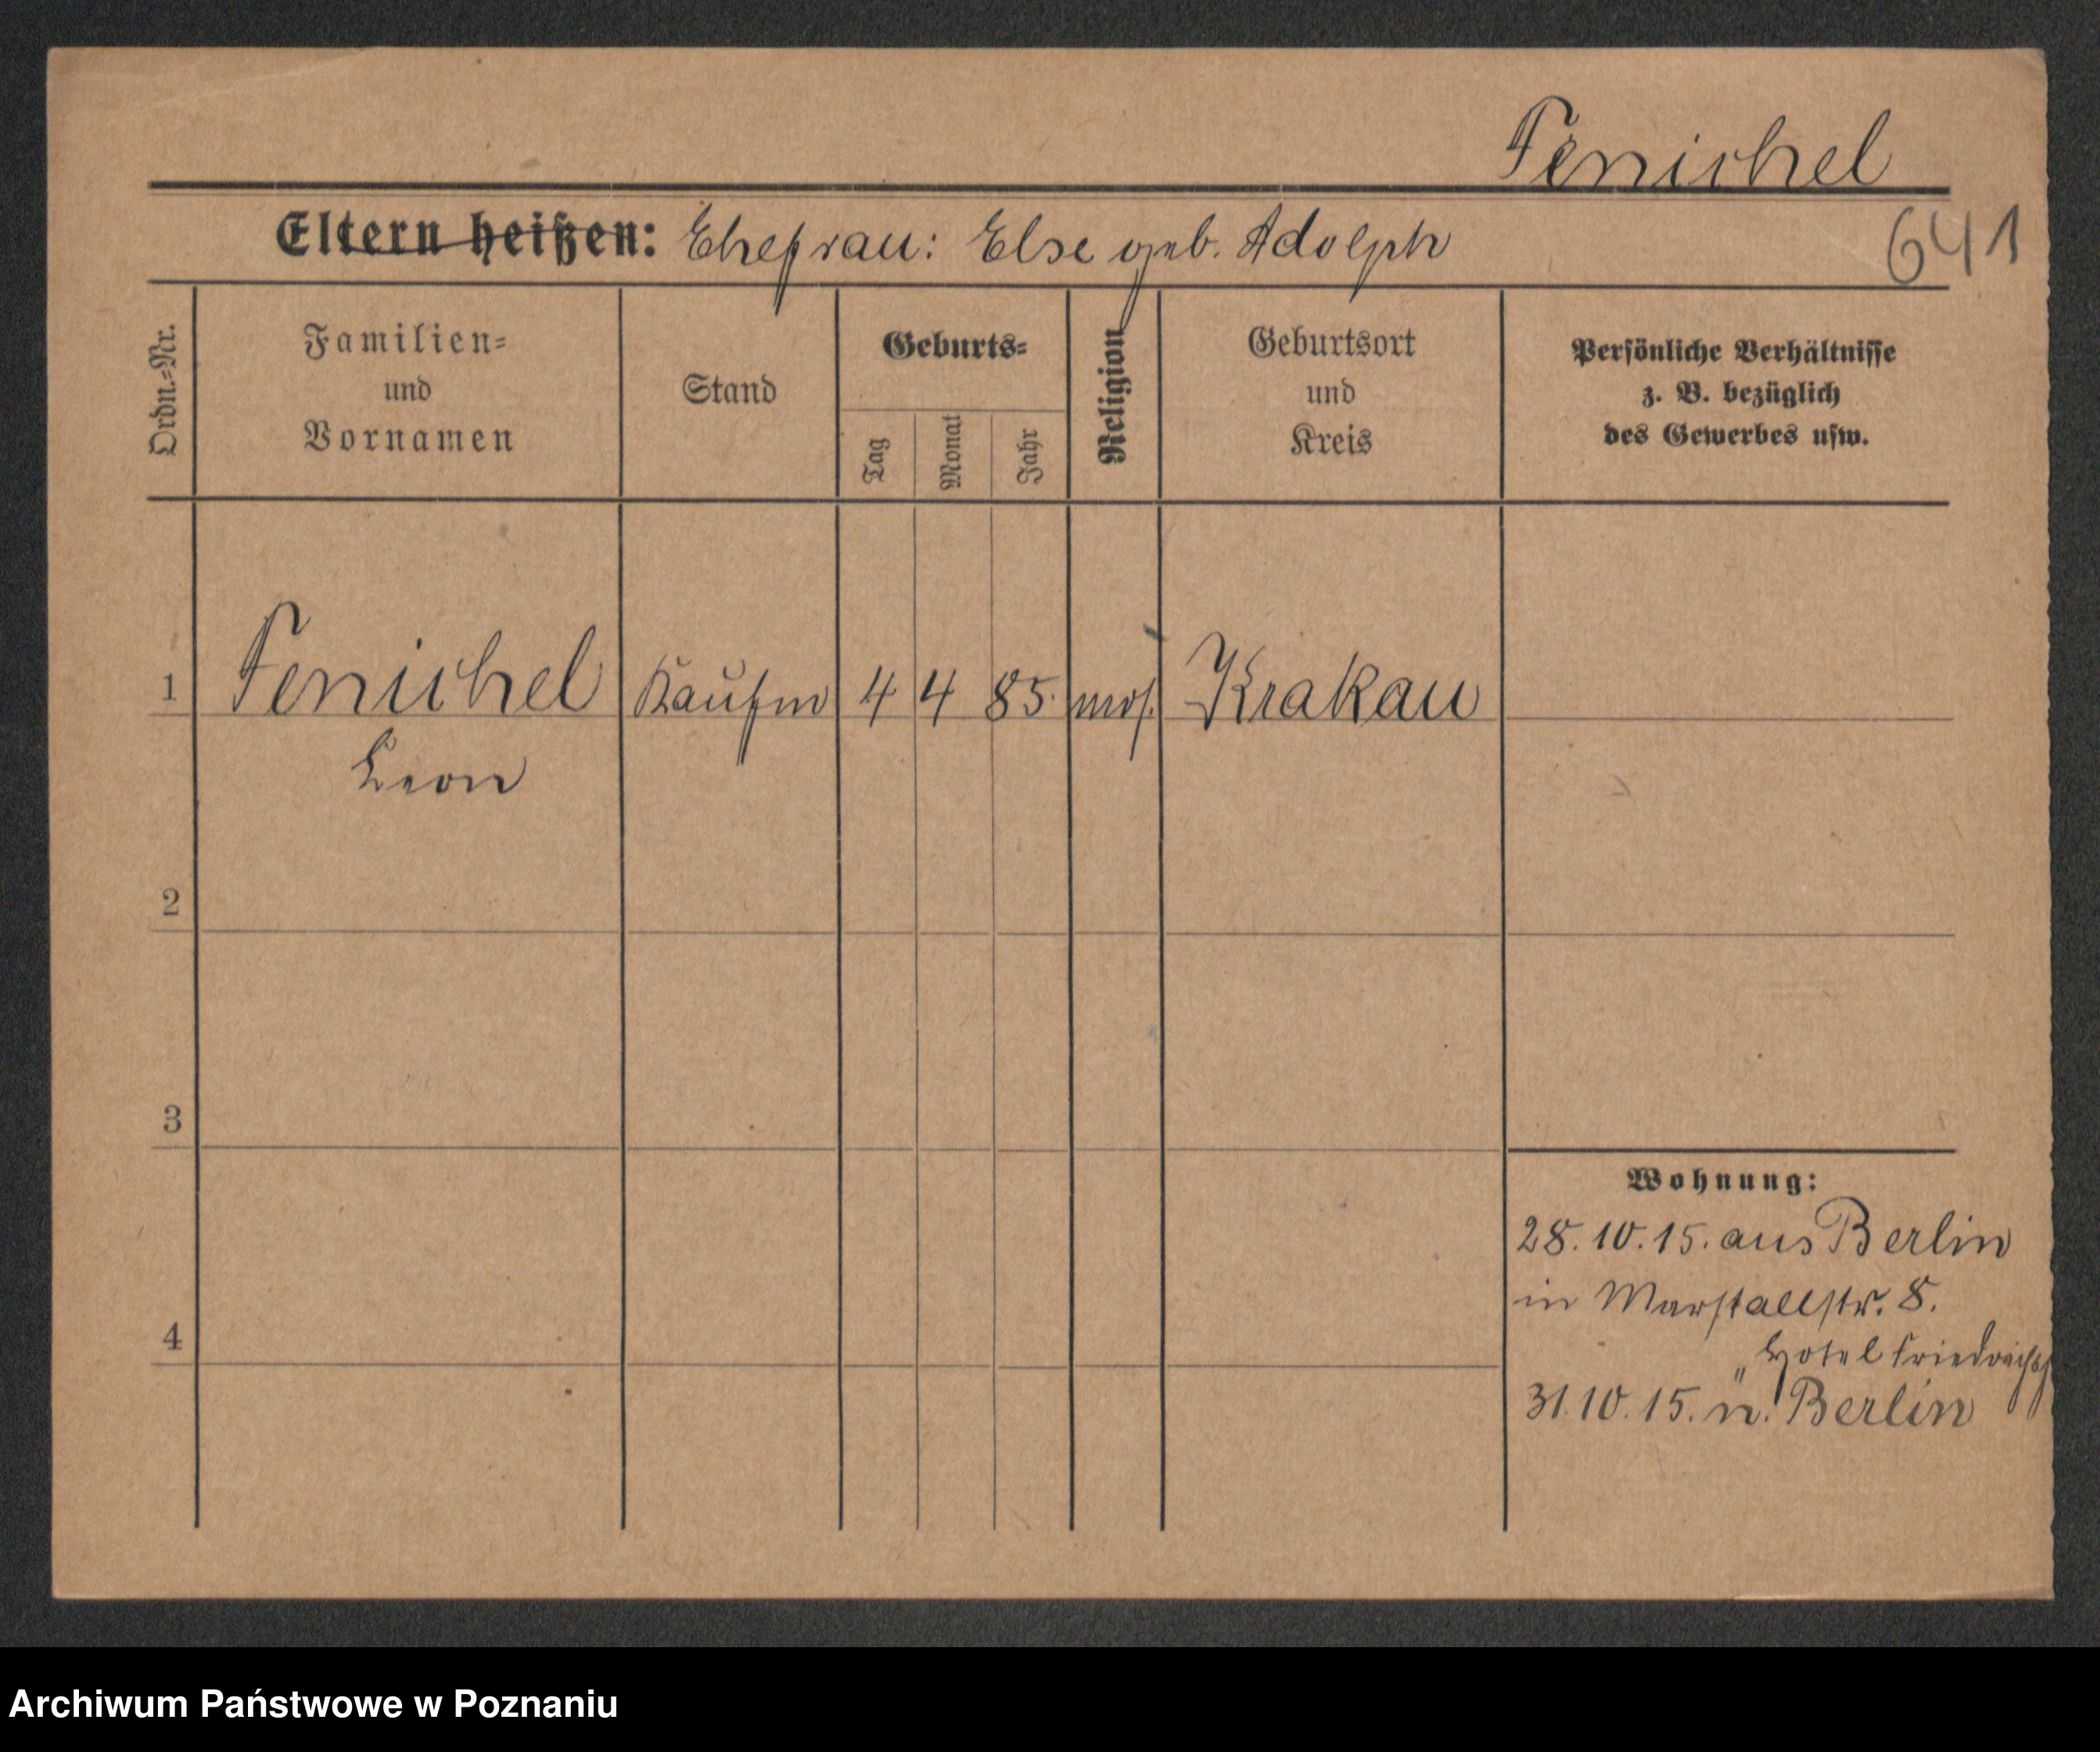 Fenichel
Eltern heißen: Ehefrau: Else geb. Adolph
641
Ordn.-Nr.
Familien-
und
Vornamen
Stand
Geburts-
Tag
Monat
Jahr
Religion
Geburtsort
und
Kreis
Persönliche Verhältnisse
z. B. bezüglich
des Gewerbes usw.
1 Fenichel Kaufm 4 4 85. mos. Krakau
Leon
2
3
Wohnung:
28.10.15. aus Berlin
in Marstallstr. 8.
4
„Hotel
31.10.15. n. Berlin
Archiwum Państwowe w Poznaniu